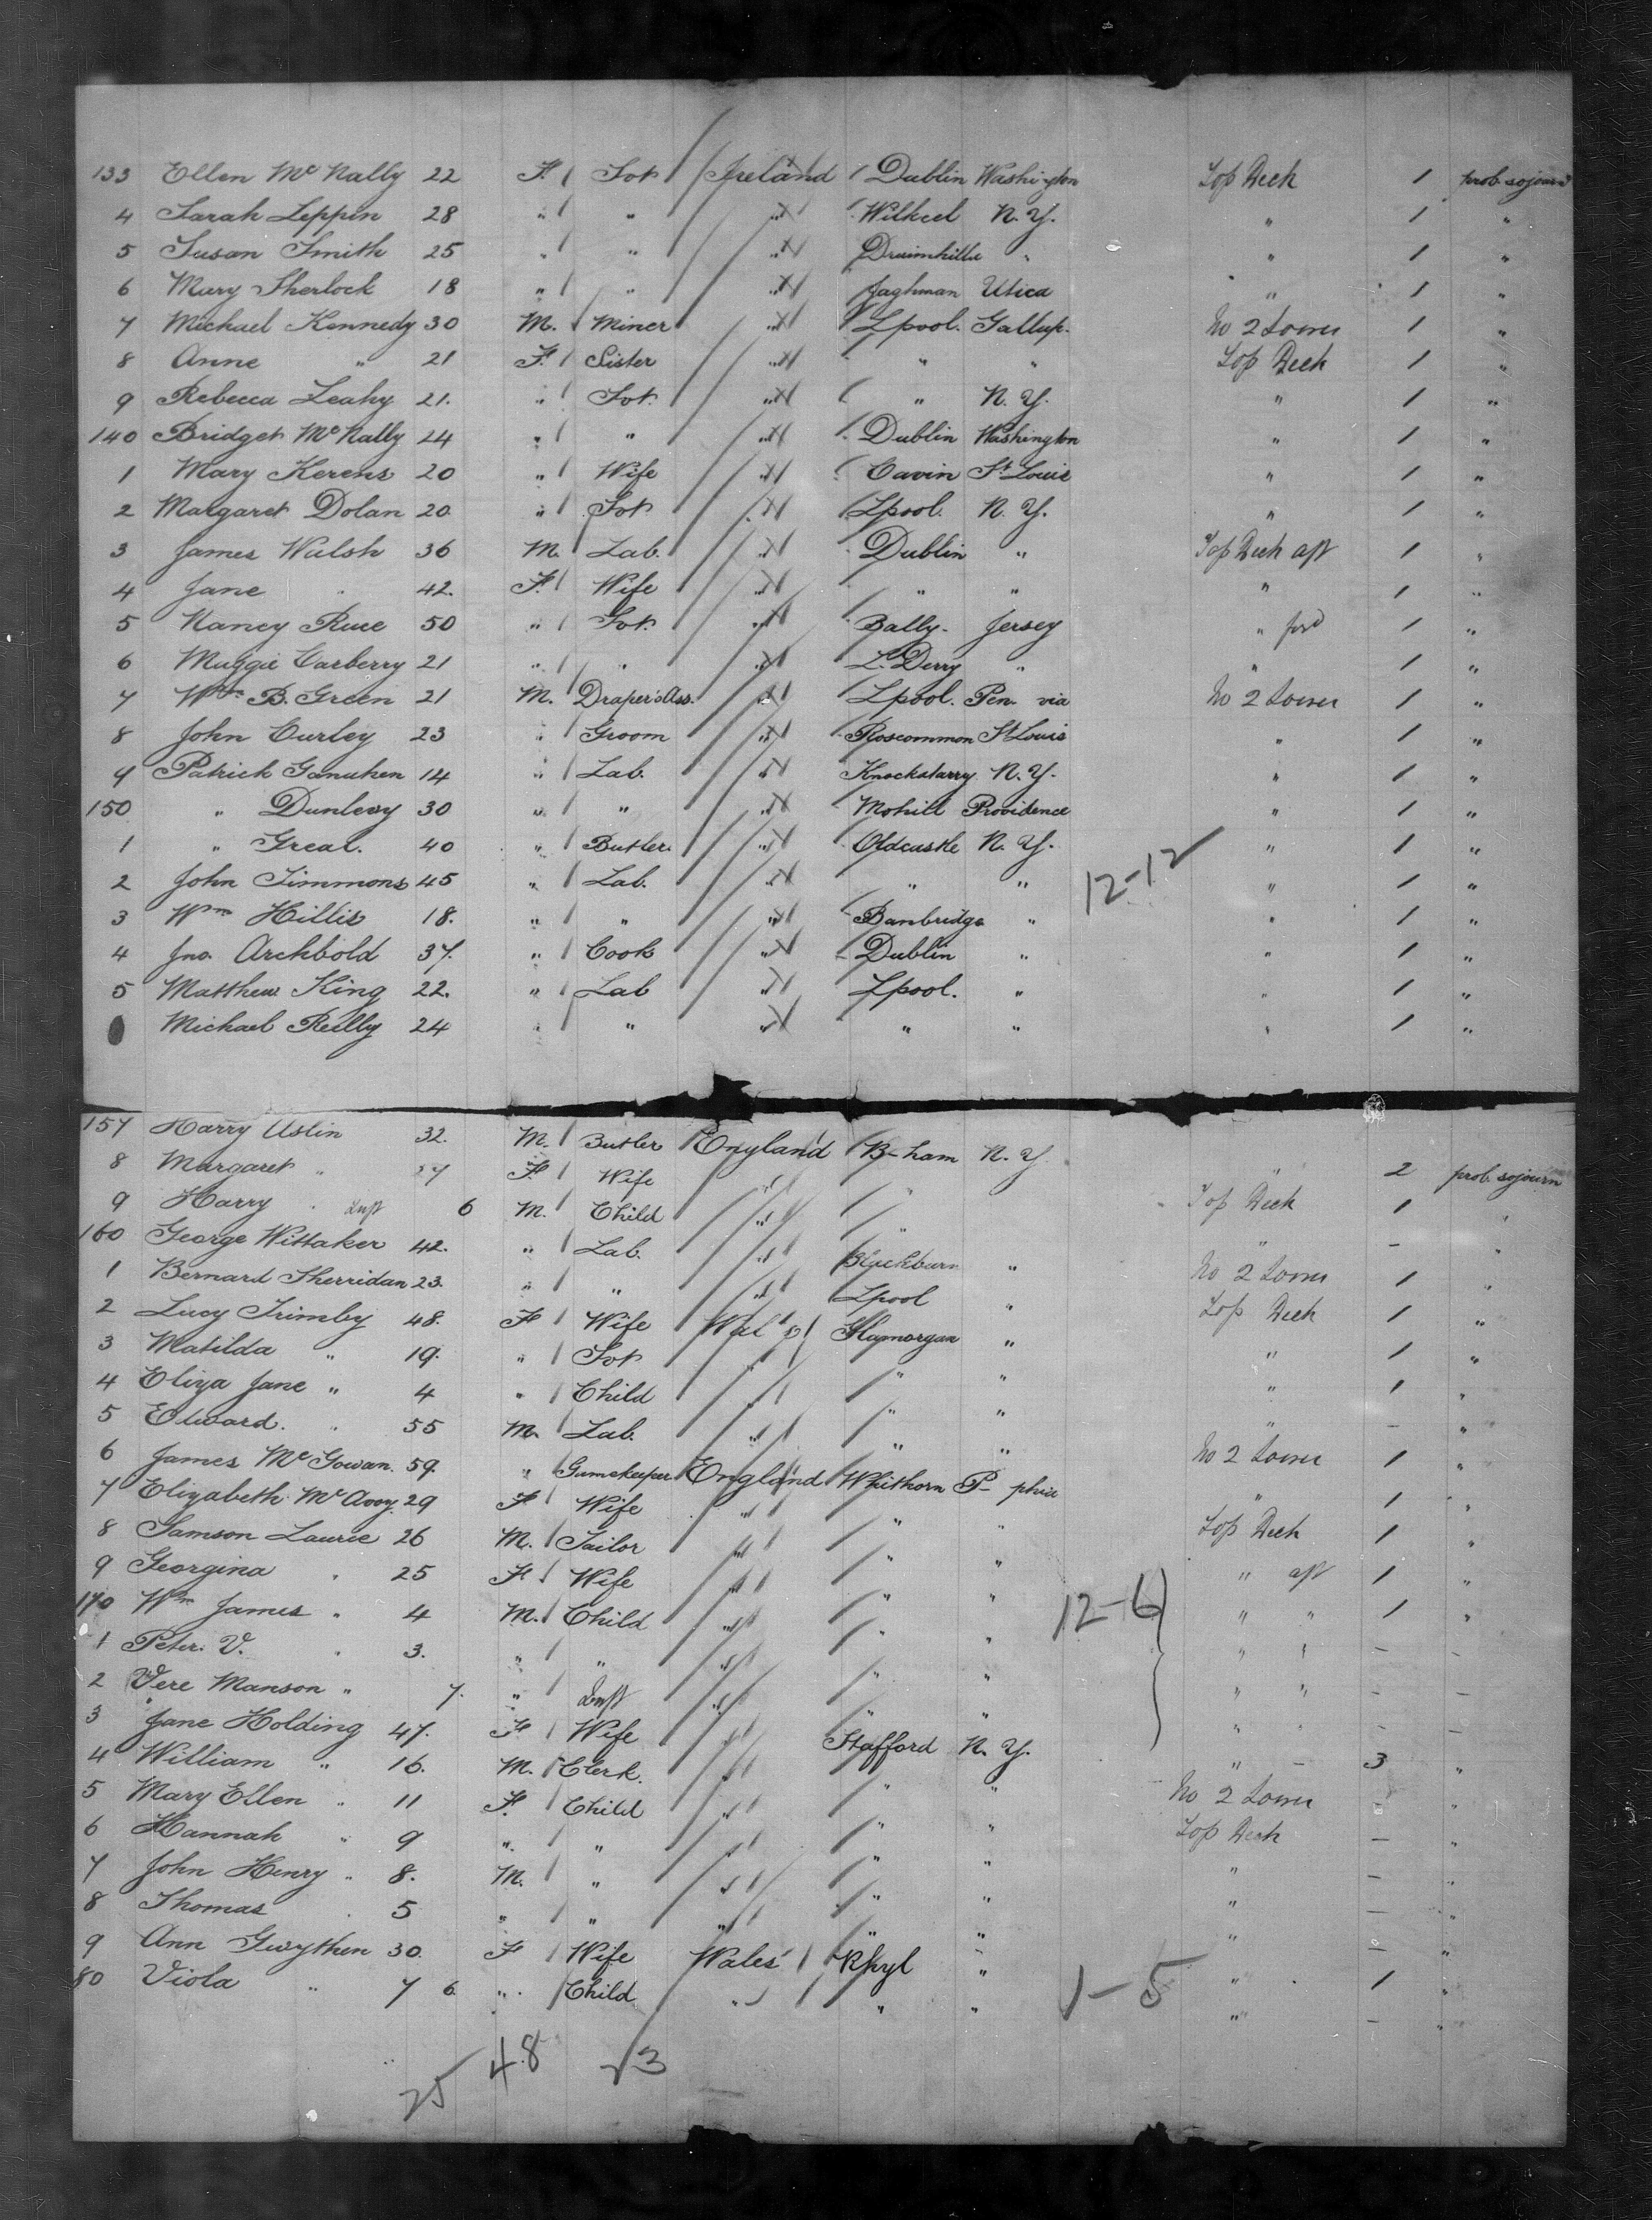 133 Ellen Mc Nally 22 F. Sp. Ireland Dublin Washington Top Deck 1 prob. sojourn
4 Sarah Leppin 28 " " " Wilkeel N. Y. " 1 "
5 Susan Smith 25 " " " " " 1 "
6 Mary Sherlock 18 " " " Jaghman Utica " 1 "
7 Michael Kennedy 30 M. Miner " Lpool. Gallup. No 2 Lower 1 "
8 Anne " 21 F. Sister " " " Top Deck 1 "
9 Rebecca Leahy 21. " Sp. " " N. Y. " 1 "
140 Bridget Mc Nally 24 " " " Dublin Washington " 1 "
1 Mary Kerens 20 " Wife " Cavin St Louis " 1 "
2 Margaret Dolan 20 " Sp. " Lpool. N. Y. " 1 "
3 James Walsh 36 M. Lab. " Dublin " Top Deck aft 1 "
4 Jane " 42. F. Wife " " " " 1 "
5 Nancy Ruce 50 " Sp. " Bally- Jersey " ford 1 "
6 Maggie Carberry 21 " " " L. Derry " " 1 "
7 Wm B. Green 21 M. Draper's Ass. " Lpool. Pen. via No 2 Lower 1 "
8 John Curley 23 " Groom " Roscommon St Louis " 1 "
9 Patrick Ganuken 14 " Lab. " Knockstarry N. Y. " 1 "
150 " Dunlevy 30 " " " Mohill Providence " 1 "
1 " Greal. 40 " Butler. " Oldcastle N. Y. " 1 "
2 John Timmons 45 " Lab. " " " 12-12 " 1 "
3 Wm Hillis 18. " " " Banbridge " " 1 "
4 Jno. Archbold 37. " Cook " Dublin " " 1 "
5 Matthew King 22. " Lab " Lpool. " " 1 "
Michael Reilly 24 " " " " " " 1 "
157 Harry Uslin 32. M. Butler England B-ham N. Y. " 2 prob. sojourn
8 Margaret " 27 F. Wife " " Top Deck 1 "
9 Harry " Inft 6 M. Child " " " - "
160 George Wittaker 42. " Lab. " Blackburn " No 2 Lower 1 "
1 Bernard Sherridan 23. " " " Lpool " Top Deck 1 "
2 Lucy Trimby 48. F Wife Wales Glamorgan " " 1 "
3 Matilda " 19. " Sp. " " " " 1 "
4 Eliza Jane " 4 " Child " " " " - "
5 Edward. " 55 M. Lab. " " " No 2 Lower 1 "
6 James Mc Gowan. 59. " Gamekeeper England Whithorn P- phia " 1 "
7 Elizabeth Mc Avoy. 29 F Wife " " " Top Deck 1 "
8 Samson Laurie 26 M. Tailor " " " " aft 1 "
9 Georgina " 25 F Wife " " " " " 1 "
170 Wm James " 4 M. Child " " " 12-6 " " - -
1 Peter. V. " 3. " " " " " " " - -
2 Vere Manson " 7. " Inft " " " " " - -
3 Jane Holding 47. F Wife " Stafford N. Y. " - 3 "
4 William " 16. M. Clerk. " " " No 2 Lower - "
5 Mary Ellen " 11 F. Child " " " Top Deck - "
6 Hannah " 9 " " " " " " - "
7 John Henry " 8. M. " " " " " - "
8 Thomas " 5 " " " " " " - "
9 Ann Gwythen 30. F Wife Wales Rhyl " " 1 "
80 Viola " 7 6 " Child " " " 1-5 " - "
25 48 23